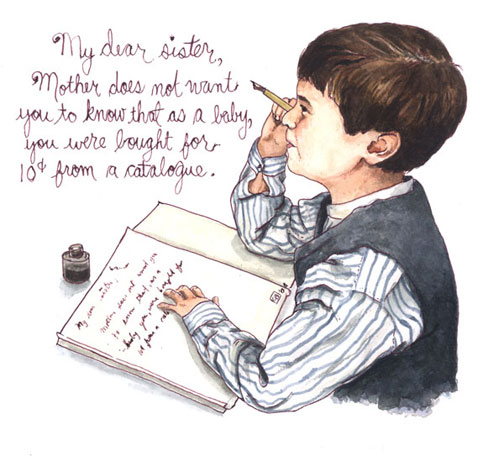 My dear sister,
Mother does not want
you to know that as a baby,
you were bought for
10¢ from a catalogue.
My dear sister,
Mother does not want you
to know that as a
baby you were bought for